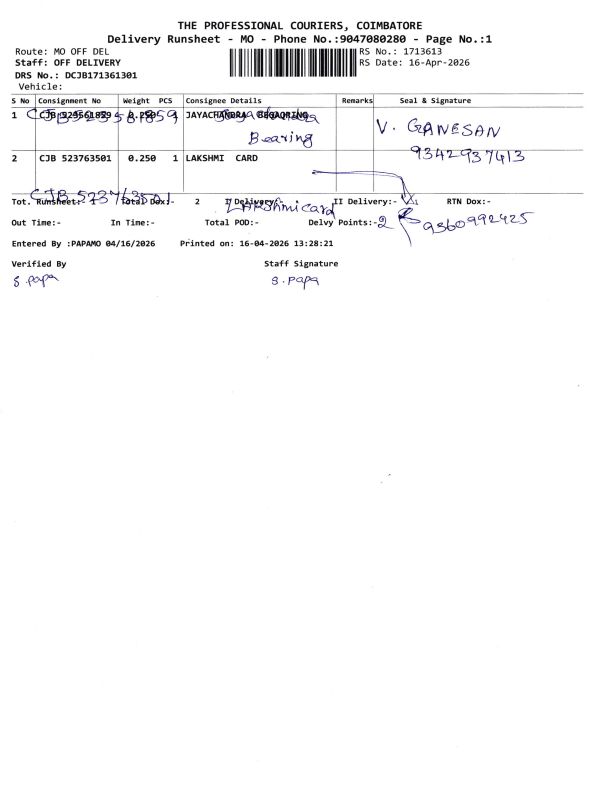 THE PROFESSIONAL COURIERS, COIMBATORE
Delivery Runsheet - MO - Phone No.:9047080280 - Page No.:1
Route: MO OFF DEL RS No.: 1713613
Staff: OFF DELIVERY RS Date: 16-Apr-2026
DRS No.: DCJB171361301
Vehicle:
S No Consignment No Weight PCS Consignee Details Remarks Seal & Signature
1 CJB 0.250 JAYACHANDRA
Bearing V. GANESAN
9342937413
2 CJB 523763501 0.250 1 LAKSHMI CARD
CJB 523763501 Lakshmi card
Tot. Runsheet:- Total Dox:- 2 I Delivery:- II Delivery:- RTN Dox:-
Out Time:- In Time:- Total POD:- Delvy Points:-2 9360992425
Entered By :PAPAMO 04/16/2026 Printed on: 16-04-2026 13:28:21
Verified By Staff Signature
S. Papa S. Papa